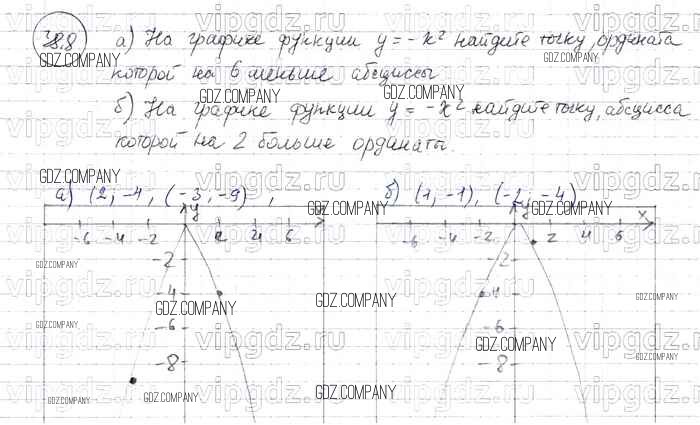 38.8 а) На графике функции y = -x² найдите точку, ордината
которой на 6 меньше абсциссы
б) На графике функции y = -x² найдите точку, абсцисса
которой на 2 больше ординаты.
а) (2; -4, (-3, -9) , б) (1, -1), (-2, -4)
y x y x
-6 -4 -2 2 4 6 -6 -4 -2 2 4 6
-2 -2
-4 -4
-6 -6
-8 -8
GDZ.COMPANY
vipgdz.ru